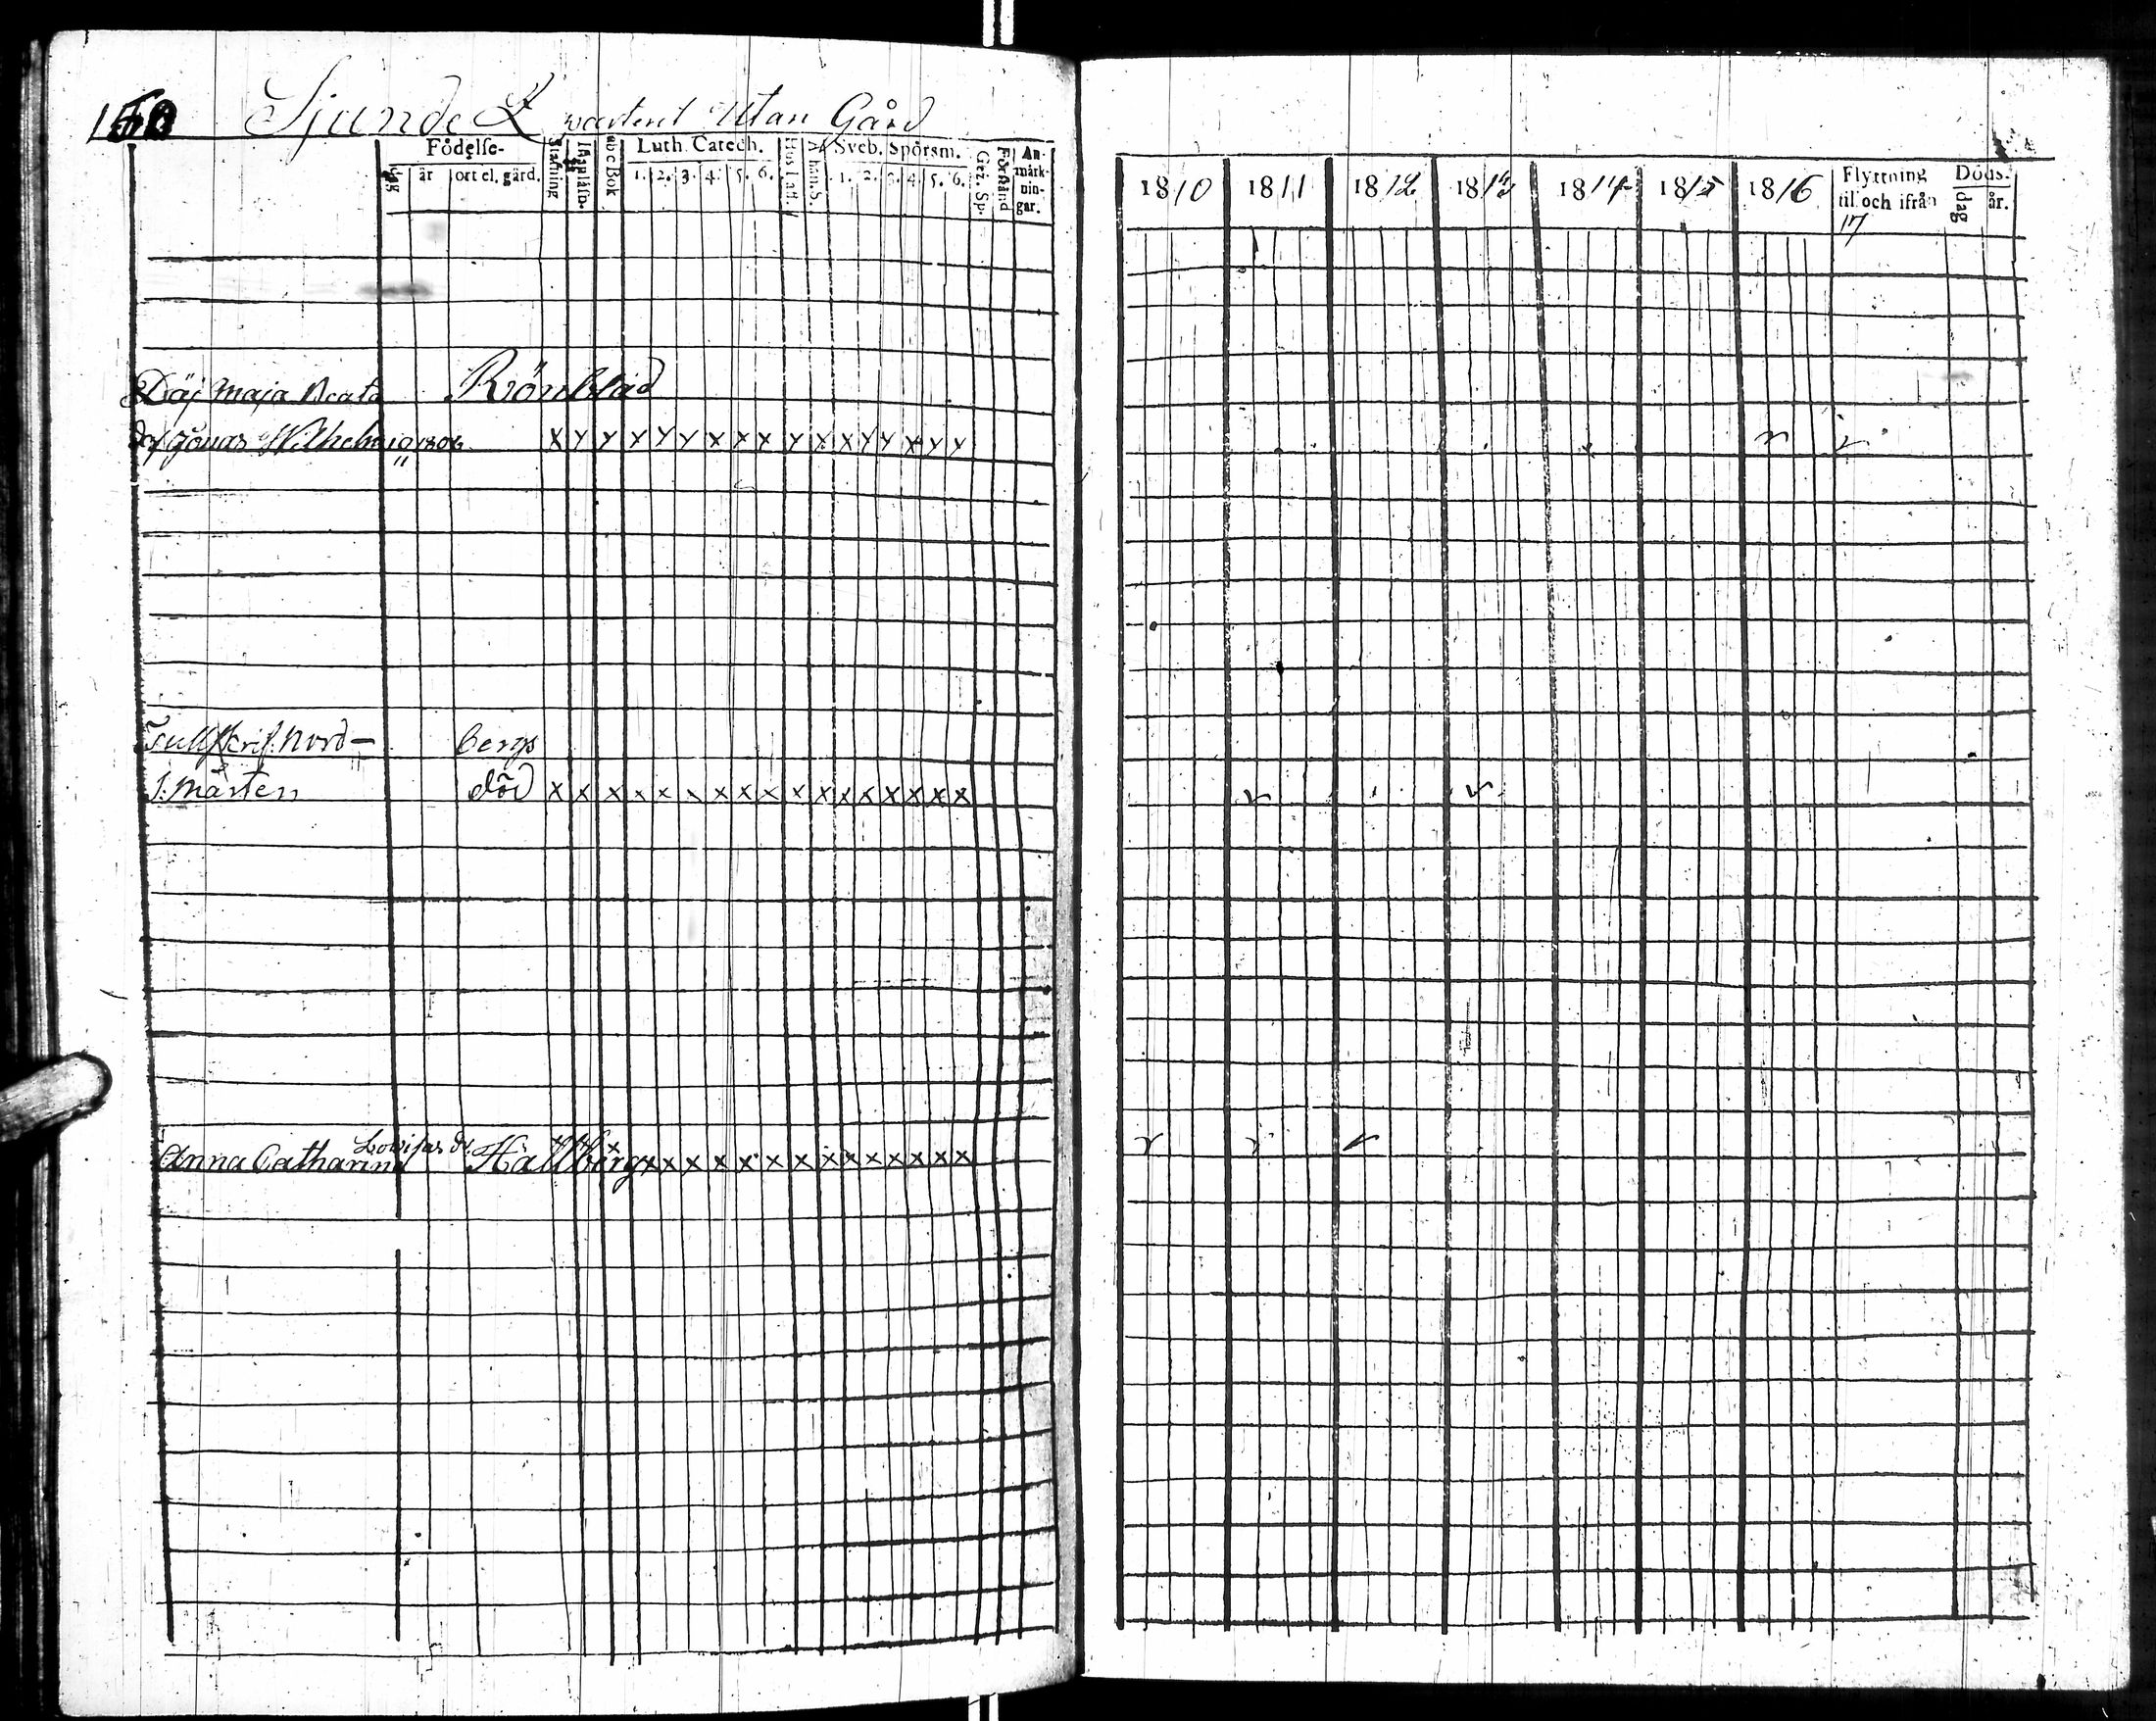 Sjunde Qvarteret Utan Gård
Födelse-
dag år ort el. gård.
Stafning
Innanläsn.
abc Bok
Luth. Catech.
1. 2. 3. 4. 5. 6.
Hus Tafl.
Ath. S.
Sveb. Spörsm.
1. 2. 3. 4. 5. 6.
Gez. Sp.
Förstånd
Anmärkningar.
Maja Beata Rönblad
Jonas Wilhelm 19 1806 x x x x x x x x x x x x x x x x x
11
Tullskrif. Nord- bergs
S. Mårten död x x x x x x x x x x x x x x x x x
Lovisas dr.
Anna Catharina Hällberg x x x x x x x x x x x x x x x x x
1810 1811 1812 1813 1814 1815 1816
Flyttning
till och ifrån
17
Döds-
dag år.